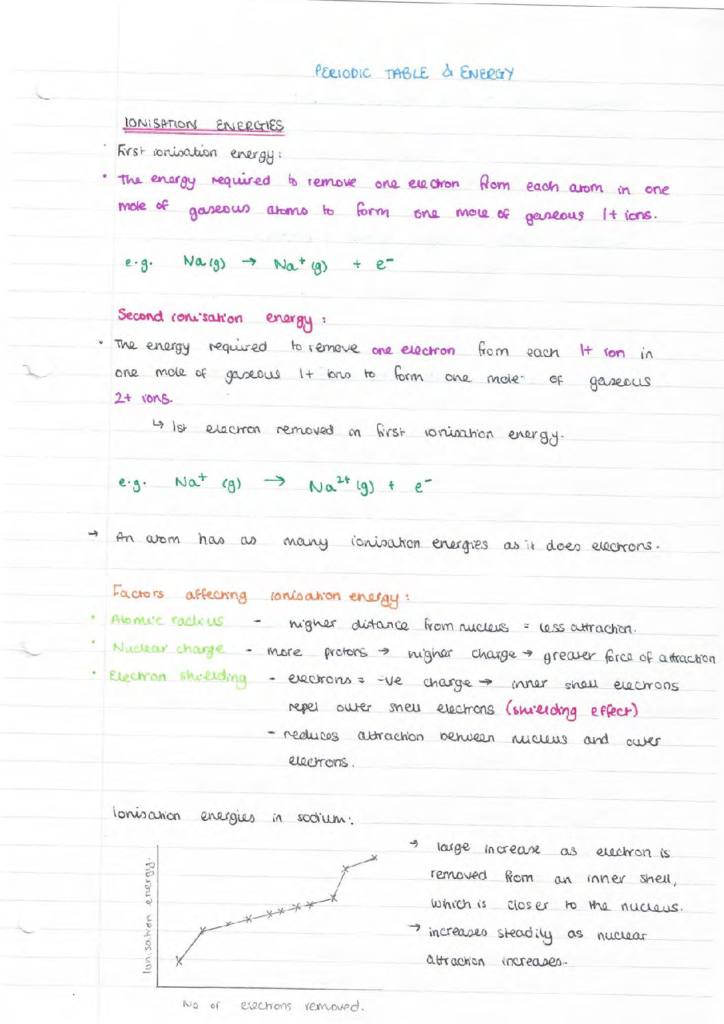 PERIODIC TABLE & ENERGY
IONISATION ENERGIES
· First ionisation energy:
· The energy required to remove one electron from each atom in one
mole of gaseous atoms to form one mole of gaseous 1+ ions.
e.g. Na(g) → Na⁺(g) + e⁻
Second ionisation energy:
· The energy required to remove one electron from each 1+ ion in
one mole of gaseous 1+ ions to form one mole of gaseous
2+ ions.
↳ 1st electron removed in first ionisation energy.
e.g. Na⁺ (g) → Na²⁺(g) + e⁻
→ An atom has as many ionisation energies as it does electrons.
Factors affecting ionisation energy:
· Atomic radius - higher distance from nucleus = less attraction.
· Nuclear charge - more protons → higher charge → greater force of attraction
· Electron shielding - electrons = -ve charge → inner shell electrons
repel outer shell electrons (shielding effect)
- reduces attraction between nucleus and outer
electrons.
Ionisation energies in sodium:
→ large increase as electron is
removed from an inner shell,
which is closer to the nucleus.
→ increases steadily as nuclear
attraction increases.
Ionisation energy.
No of electrons removed.